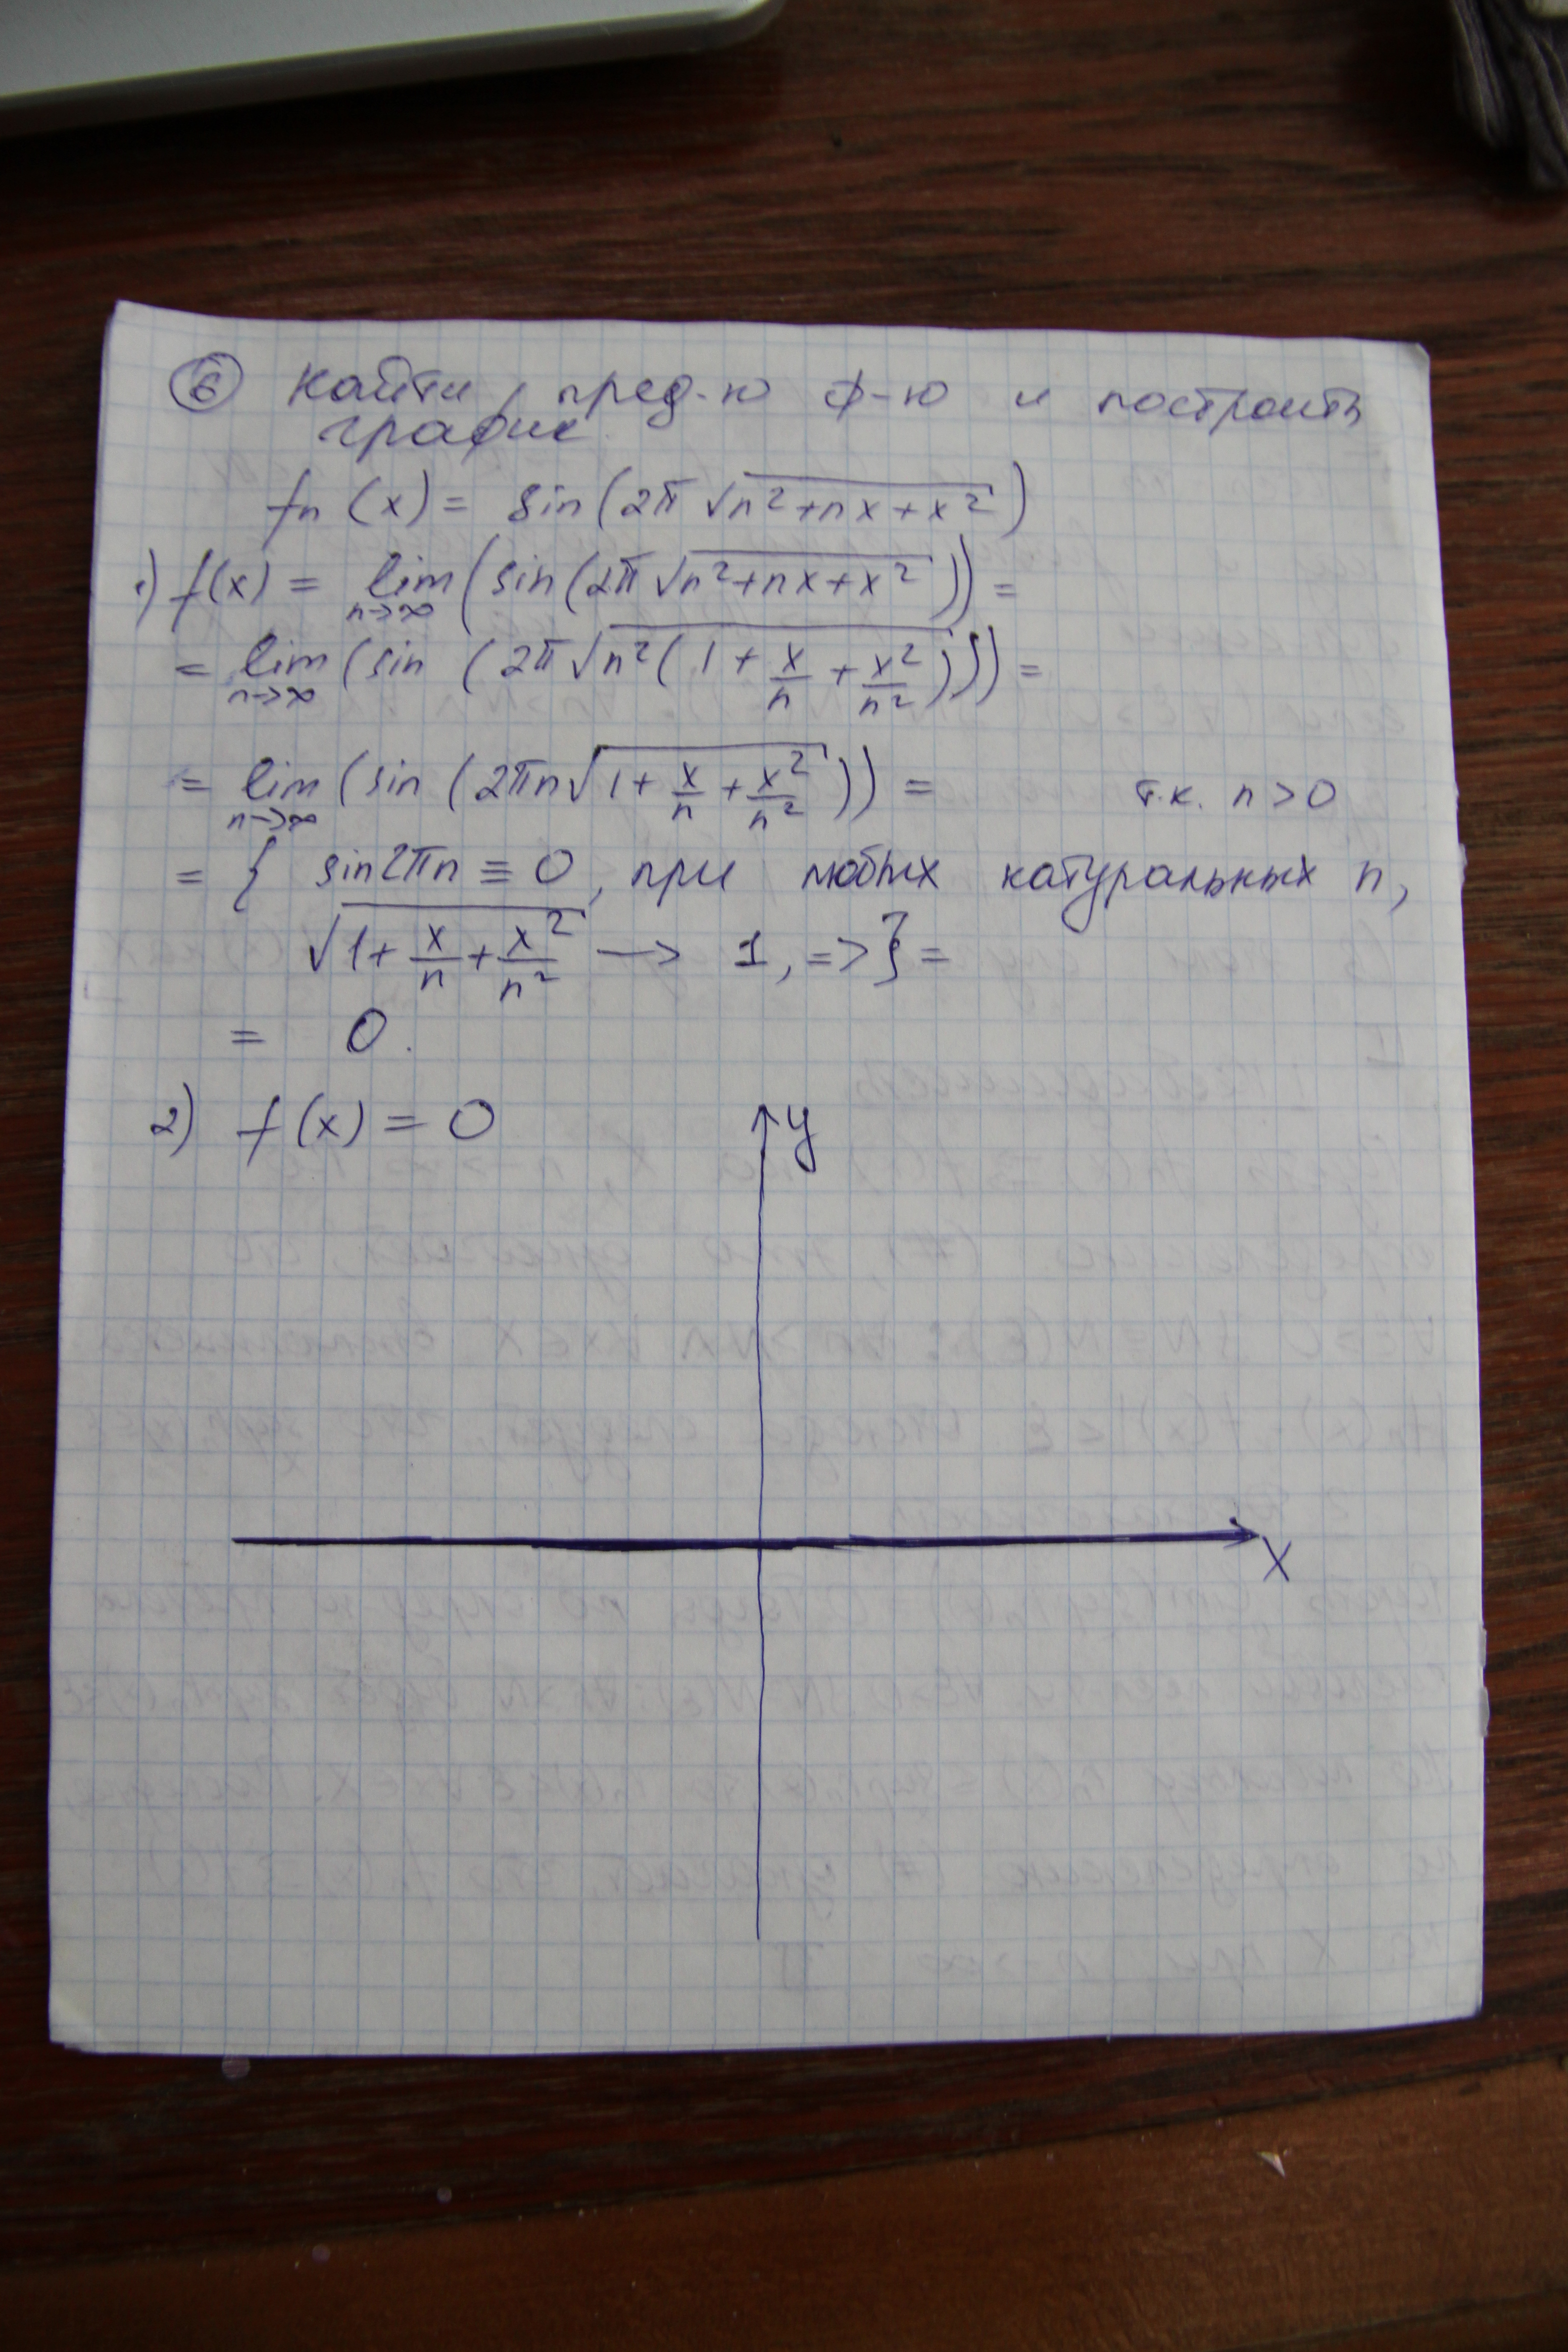 ⑥ Найти пред-ю ф-ю и построить
график
fn (x) = sin(2π √(n²+nx+x²))
1) f(x) = lim n→∞ (sin(2π√(n²+nx+x²))) =
= lim n→∞ (sin (2π√(n²(1 + x/n + x²/n²)))) =
= lim n→∞ (sin (2πn√(1+ x/n + x²/n²))) = т.к. n > 0
= { sin2πn ≡ 0, при любых натуральных n,
√(1+ x/n + x²/n²) → 1, => } =
= 0.
2) f(x) = 0
y
x